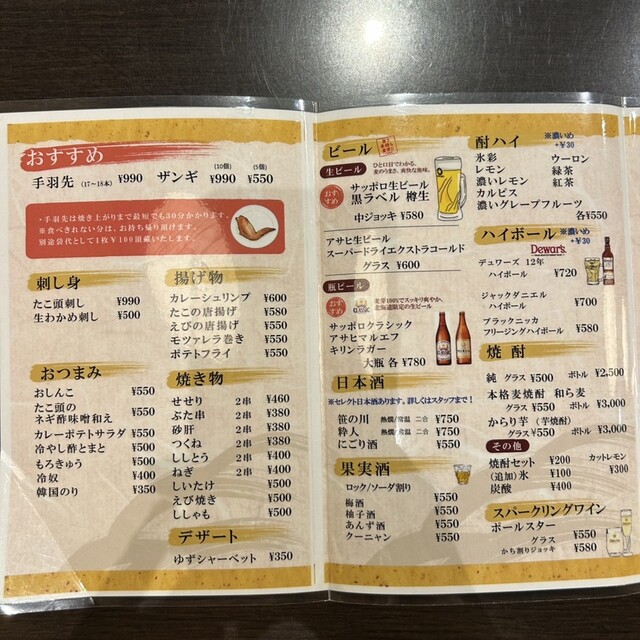 おすすめ
手羽先 (17〜18本) ¥990 ザンギ (10個) ¥990 (5個) ¥550
・手羽先は焼き上がりまで最短でも30分かかります。
※食べきれない分は、お持ち帰り頂けます。
別途袋代として1枚¥100頂戴いたします。
刺し身
たこ頭刺し ¥990
生わかめ刺し ¥500
おつまみ
おしんこ ¥550
たこ頭の
ネギ酢味噌和え ¥550
カレーポテトサラダ ¥550
冷やし酢とまと ¥500
もろきゅう ¥500
冷奴 ¥400
韓国のり ¥350
揚げ物
カレーシュリンプ ¥600
たこの唐揚げ ¥580
えびの唐揚げ ¥550
モツァレラ巻き ¥550
ポテトフライ ¥550
焼き物
せせり 2串 ¥460
ぶた串 2串 ¥380
砂肝 2串 ¥380
つくね 2串 ¥400
ししとう 2串 ¥400
ねぎ 2串 ¥400
しいたけ ¥500
えび焼き ¥500
ししゃも ¥500
デザート
ゆずシャーベット ¥350
ビール
生ビール
ひと口目でわかる、
麦のうまさ、爽快な後味。
おすすめ
サッポロ生ビール
黒ラベル 樽生
中ジョッキ ¥580
アサヒ生ビール
スーパードライエクストラコールド
グラス ¥600
瓶ビール
おすすめ
CLASSIC
麦芽100%でスッキリ爽やか、
北海道限定の生ビール
サッポロクラシック
アサヒマルエフ
キリンラガー
大瓶 各 ¥780
日本酒
※セレクト日本酒あります。詳しくはスタッフまで!
笹の川 熱燗/常温 二合 ¥750
粋人 熱燗/常温 二合 ¥750
にごり酒 ¥550
果実酒
ロック/ソーダ割り
梅酒 ¥550
柚子酒 ¥550
あんず酒 ¥550
クーニャン ¥550
酎ハイ ※濃いめ +¥30
氷彩 ウーロン
レモン 緑茶
濃いレモン 紅茶
カルピス
濃いグレープフルーツ
各¥550
ハイボール ※濃いめ +¥30
Dewar's
デュワーズ 12年
ハイボール ¥720
ジャックダニエル
ハイボール ¥700
ブラックニッカ
フリージングハイボール ¥580
焼酎
純 グラス ¥500 ボトル ¥2,500
本格麦焼酎 和ら麦
グラス ¥550 ボトル ¥3,000
からり芋 (芋焼酎)
グラス¥550 ボトル ¥3,000
その他
焼酎セット ¥200 カットレモン
(追加)氷 ¥100 ¥300
炭酸 ¥400
スパークリングワイン
ポールスター
グラス ¥550
かち割りジョッキ ¥580